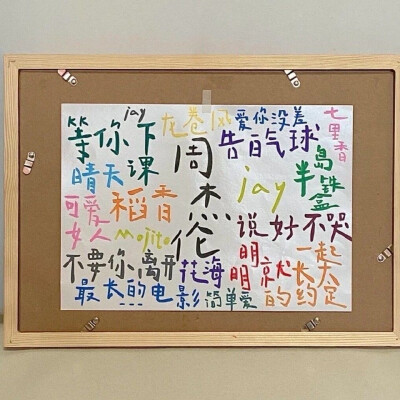 jay
等你下课
龙卷风
爱你没差
七里香
告白气球
周杰伦
晴天
半岛铁盒
jay
可爱女人
稻香
Mojito
说好不哭
不要你离开
花海
明明就
一起长大的约定
最长的电影
简单爱